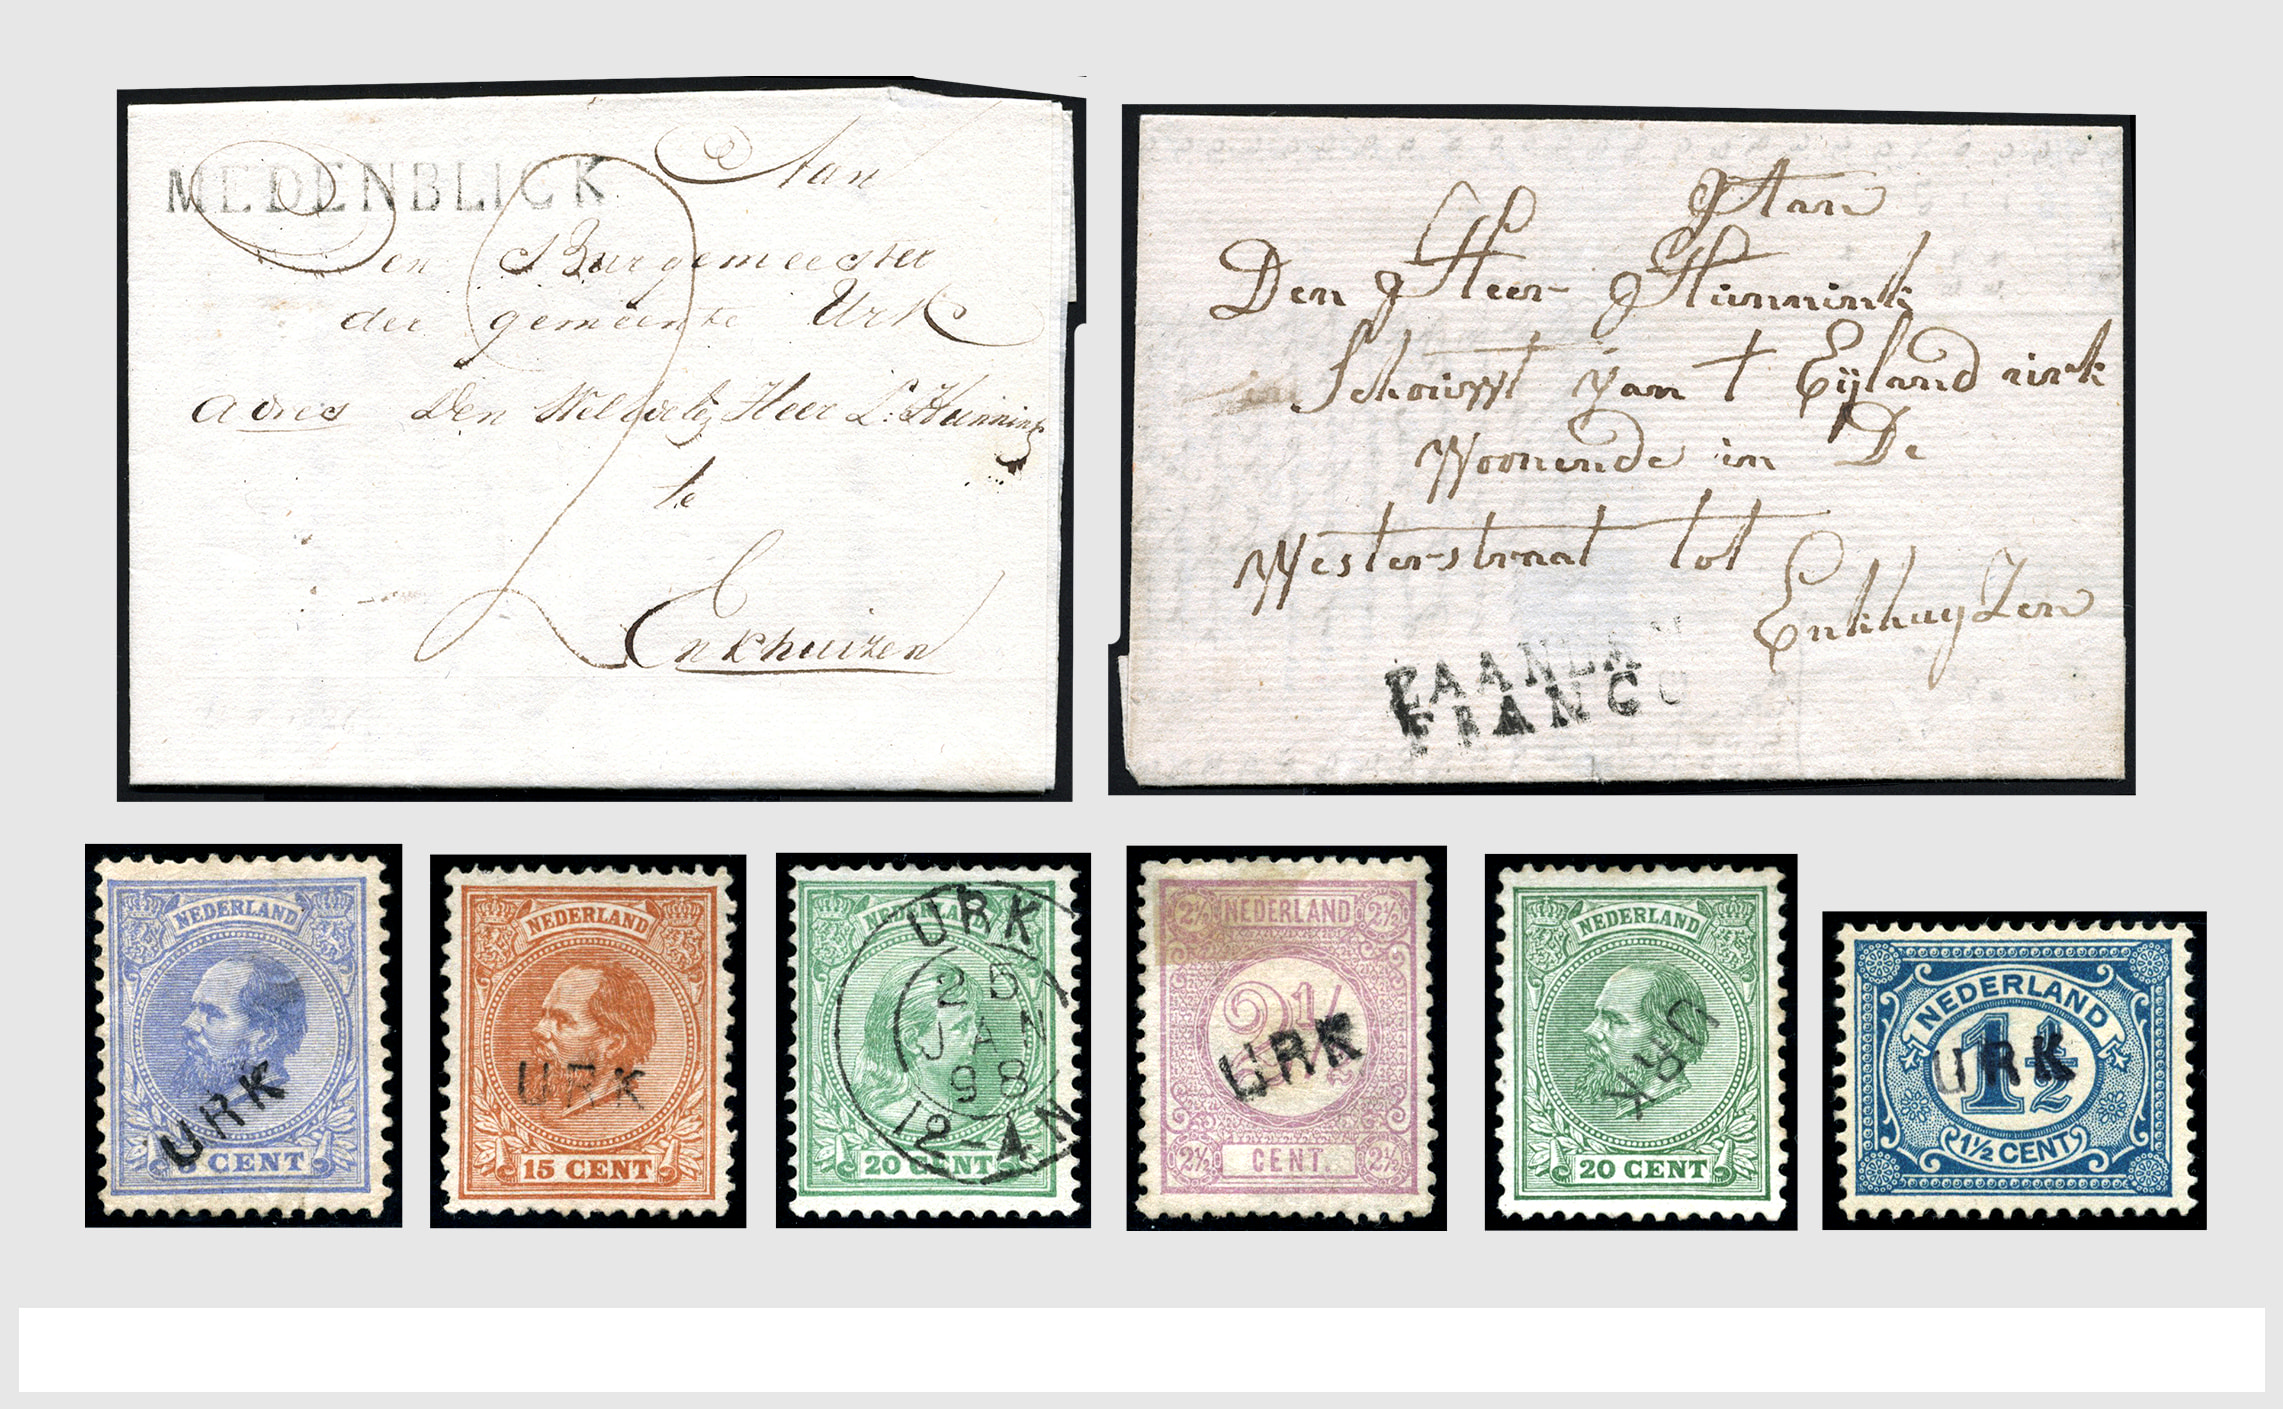 MEDENBLICK
Aan
Den Burgemeester
der gemeente Urk
adres Den Wel Edelen Heer L: Hunnink
te
Enkhuizen
Aan
Den Heer Hunnink
Schouwt van t Eyland urk
Woonende in De
Westerstraat tot
Enkhuyzen
ZAANDAM
FRANCO
NEDERLAND
URK
5 CENT
NEDERLAND
URK
15 CENT
NEDERLAND
URK
25
JAN
98
12-4N
20 CENT
2½ NEDERLAND 2½
2½
URK
2½ CENT. 2½
NEDERLAND
URK
20 CENT
NEDERLAND
1½
URK
1½ CENT